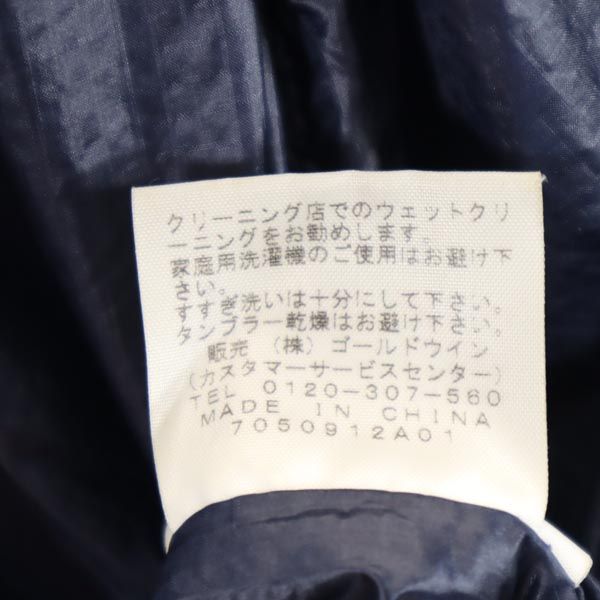 クリーニング店でのウェットクリ
ーニングをお勧めします。
家庭用洗濯機のご使用はお避け下
さい。
すすぎ洗いは十分にして下さい。
タンブラー乾燥はお避け下さい。
販売 (株) ゴールドウイン
(カスタマーサービスセンター)
TEL 0120-307-560
MADE IN CHINA
7050912A01